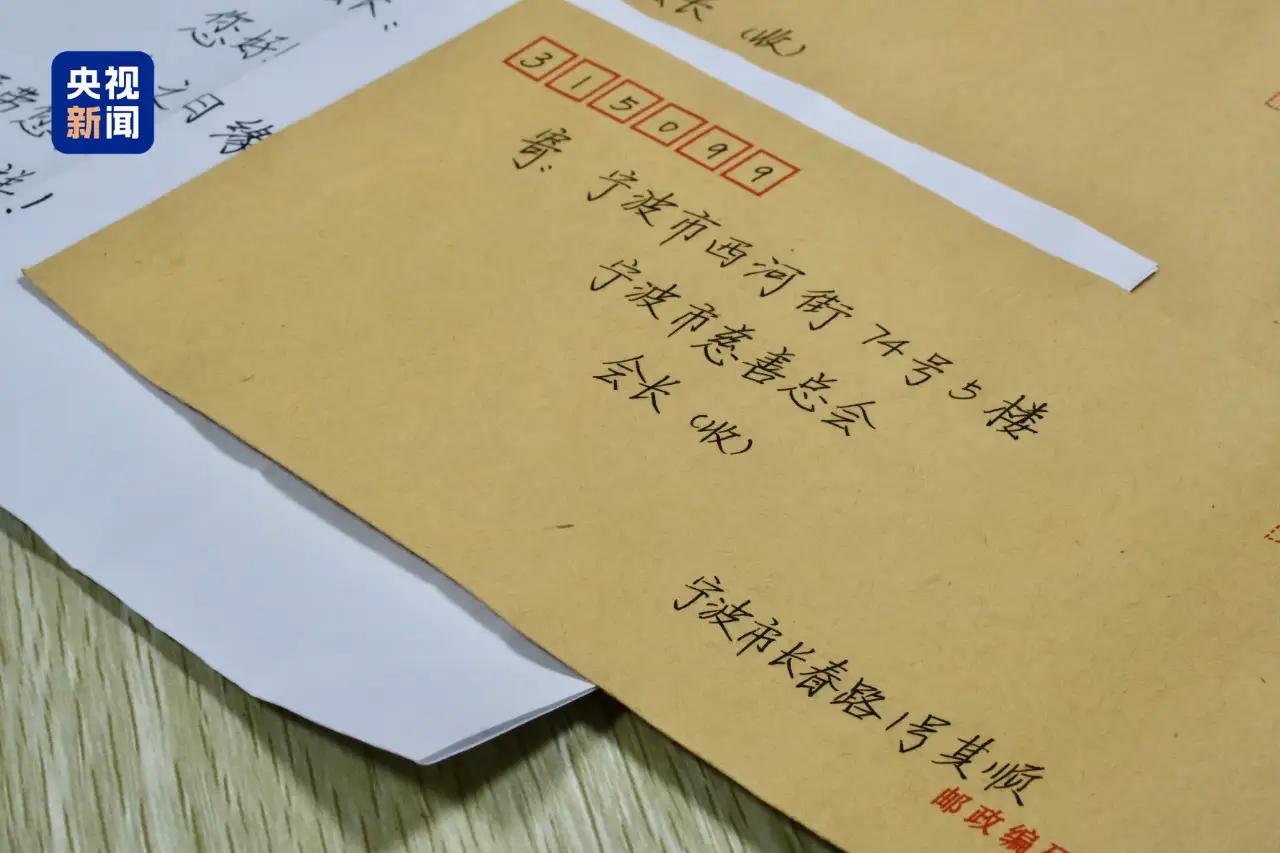 央视
新闻
您好!
之日 缘
长 (收)
315099
寄: 宁波市西河街74号5楼
宁波市慈善总会
会长 (收)
宁波市长春路1号其顺
邮政编